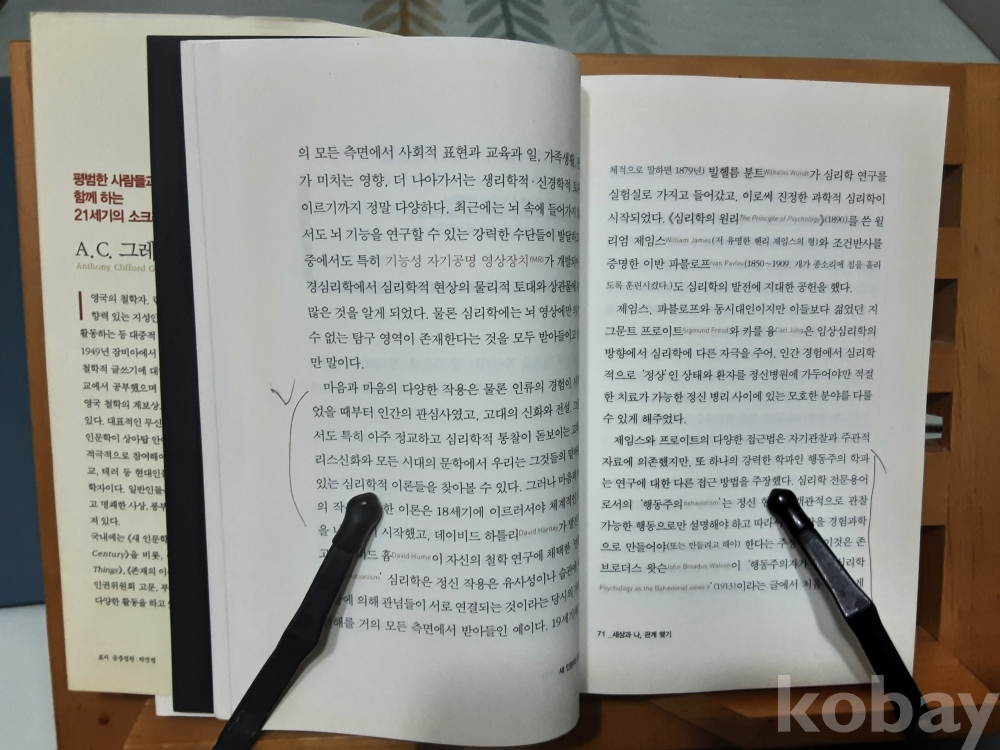 평범한 사람들과
함께 하는
21세기의 소크
A.C. 그레
Anthony Clifford G
영국의 철학자.
향력 있는 지성인
활동하는 등 대중적
1949년 잠비아에서
철학적 글쓰기에 대
교에서 공부했으며
영국 철학의 계보상
있다. 대표적인 무신
인문학이 상아탑 안
적극적으로 참여해
교, 테러 등 현대인
학자이다. 일반인들
고 명쾌한 사상, 풍부
져 있다.
국내에는 《새 인문학
Century》을 비롯,
Things》, 《존재의 이
인권위원회 고문, 부
다양한 활동을 하고
표지
의 모든 측면에서 사회적 표현과 교육과 일, 가족생활,
가 미치는 영향, 더 나아가서는 생리학적·신경학적
이르기까지 정말 다양하다. 최근에는 뇌 속에 들어가지
서도 뇌 기능을 연구할 수 있는 강력한 수단들이 발달하고
중에서도 특히 기능성 자기공명 영상장치fMRI가 개발되
경심리학에서 심리학적 현상의 물리적 토대와 상관물에
많은 것을 알게 되었다. 물론 심리학에는 뇌 영상에만
수 없는 탐구 영역이 존재한다는 것을 모두 받아들이고
만 말이다.
마음과 마음의 다양한 작용은 물론 인류의 경험이 시
었을 때부터 인간의 관심사였고, 고대의 신화와 전설,
서도 특히 아주 정교하고 심리학적 통찰이 돋보이는
리스신화와 모든 시대의 문학에서 우리는 그것들의
있는 심리학적 이론들을 찾아볼 수 있다. 그러나 마음과
의 이론은 18세기에 이르러서야 체계적인
시작했고, 데이비드 하틀리David Hartley가
흄David Hume이 자신의 철학 연구에 채택한
심리학은 정신 작용은 유사성이나 습관에
에 의해 관념들이 서로 연결되는 것이라는 당시의
해를 거의 모든 측면에서 받아들인 예이다. 19세기
새 인문학
체적으로 말하면 1879년) 빌헬름 분트Wilhelm Wundt가 심리학 연구를
실험실로 가지고 들어갔고, 이로써 진정한 과학적 심리학이
시작되었다. 《심리학의 원리The Principle of Psychology》(1890)를 쓴 윌
리엄 제임스William James(저 유명한 헨리 제임스의 형)와 조건반사를
증명한 이반 파블로프Ivan Pavlov(1850~1909, 개가 종소리에 침을 흘리
도록 훈련시켰다.)도 심리학의 발전에 지대한 공헌을 했다.
제임스, 파블로프와 동시대인이지만 이들보다 젊었던 지
그문트 프로이트Sigmund Freud와 카를 융Carl Jung은 임상심리학의
방향에서 심리학에 다른 자극을 주어, 인간 경험에서 심리학
적으로 ‘정상’인 상태와 환자를 정신병원에 가두어야만 적절
한 치료가 가능한 정신 병리 사이에 있는 모호한 분야를 다룰
수 있게 해주었다.
제임스와 프로이트의 다양한 접근법은 자기관찰과 주관적
자료에 의존했지만, 또 하나의 강력한 학파인 행동주의 학파
는 연구에 대한 다른 접근 방법을 주장했다. 심리학 전문용어
로서의 ‘행동주의behaviourism’는 정신 객관적으로 관찰
가능한 행동으로만 설명해야 하고 따라서 경험과학
으로 만들어야(또는 만들려고 해야) 한다는 이것은 존
브로더스 왓슨John Broadus Watson이 ‘행동주의자가 심리학
Psychology as the Behaviourist views it’(1913)이라는 글에서
71 _세상과 나, 관계 맺기
kobay